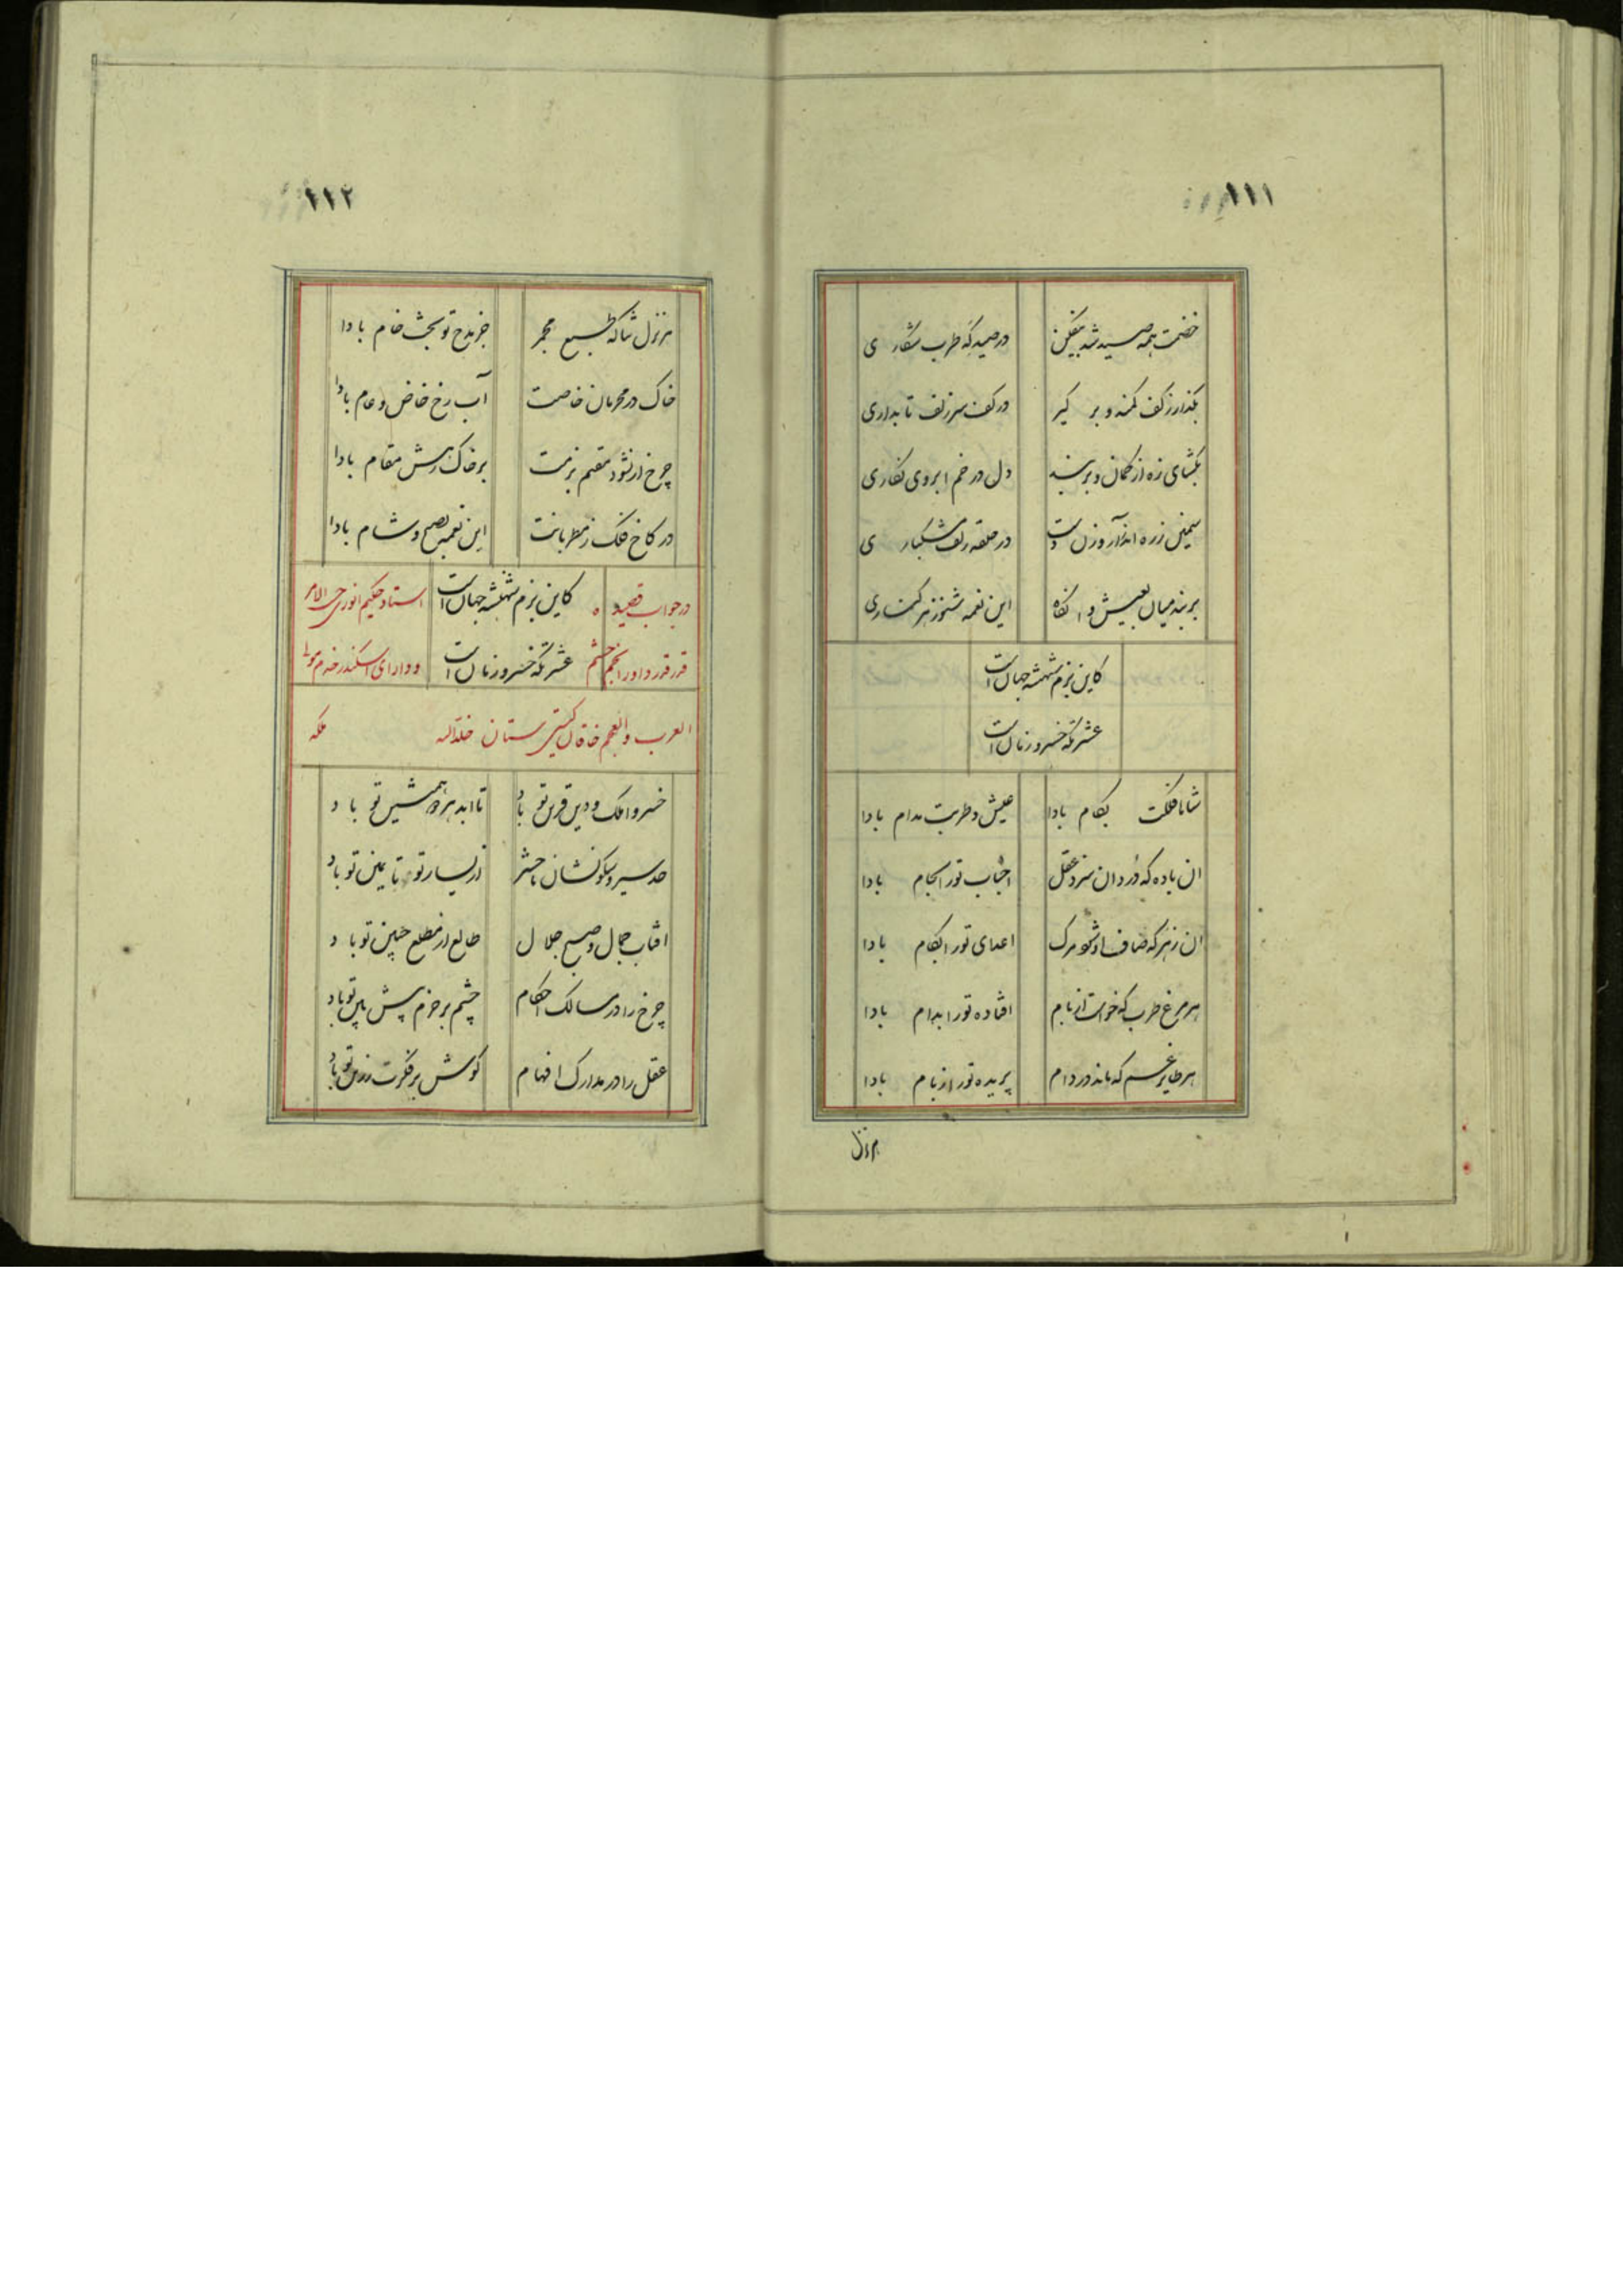 ۱۱۱
خصمت همه صید شد بیفکن در صیدگه طرب شکاری
بگذار ز کف کمند و بر گیر در کف سر زلف تابداری
بگشای زه از کمان و بر بند دل در خم ابروی نگاری
سیمین زره اندر آر و زن دست در حلقه زلف مشکباری
بر بند میان بعیش و انگاه این نغمه شنو ز هر کناری
کاین بزم شهنشه جهان است
عشرتگه خسرو زمان است
شاها فلکت بکام بادا عیش و طربت مدام بادا
ان باده که درد ان سزد عقل احباب تورا بجام بادا
ان زهر که صاف او شود مرک اعدای تورا بکام بادا
هر مرغ طرب که خواست از بام افتاده تورا بدام بادا
هر طایر غم که ماند در دام پریده تورا ز بام بادا
۱۱۲
جز مدح تو بحث خام بادا
خاک در محرمان خاصت آب رخ خاص و عام بادا
چرخ ار نشود مقیم بزمت بر خاک رهش مقام بادا
در کاخ فلک ز مطربانت این نغمه بصبح و شام بادا
در جواب قصیده کاین بزم شهنشه جهان است استاد حکیم انوری حسب الامر
قدر قدر داور انجم حشم عشرتگه خسرو زمان است و دارای اسکندر خدم
العرب والعجم خاقان گیتی ستان خلدالله ملکه
خسروا ملک و دین قرین تو باد تا ابد همنشین تو باد
حد سیر و سکونشان تا حشر از یسار تو تا یمین تو باد
افتاب جمال و صبح جلال طالع از مطلع جبین تو باد
چرخ را در مسالک احکام چشم بر حزم پیش بین تو باد
عقل را در مدارک افهام گوش بر فکرت رزین تو باد